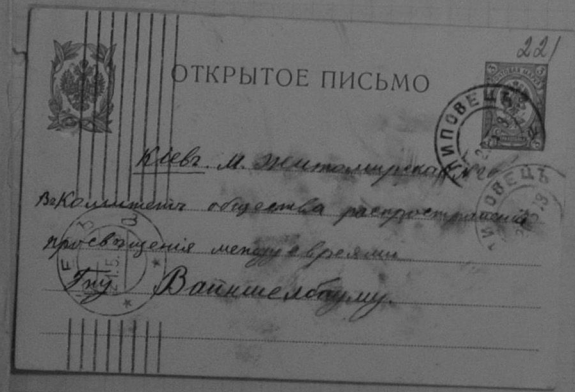 221
ОТКРЫТОЕ ПИСЬМО
ЛИПОВЕЦЪ
Кіевъ М. Житомирская № 20
ЛИПОВЕЦЪ
Въ Комитетъ общества распространенія
просвѣщенія между евреями
Гну Вайншелбауму.